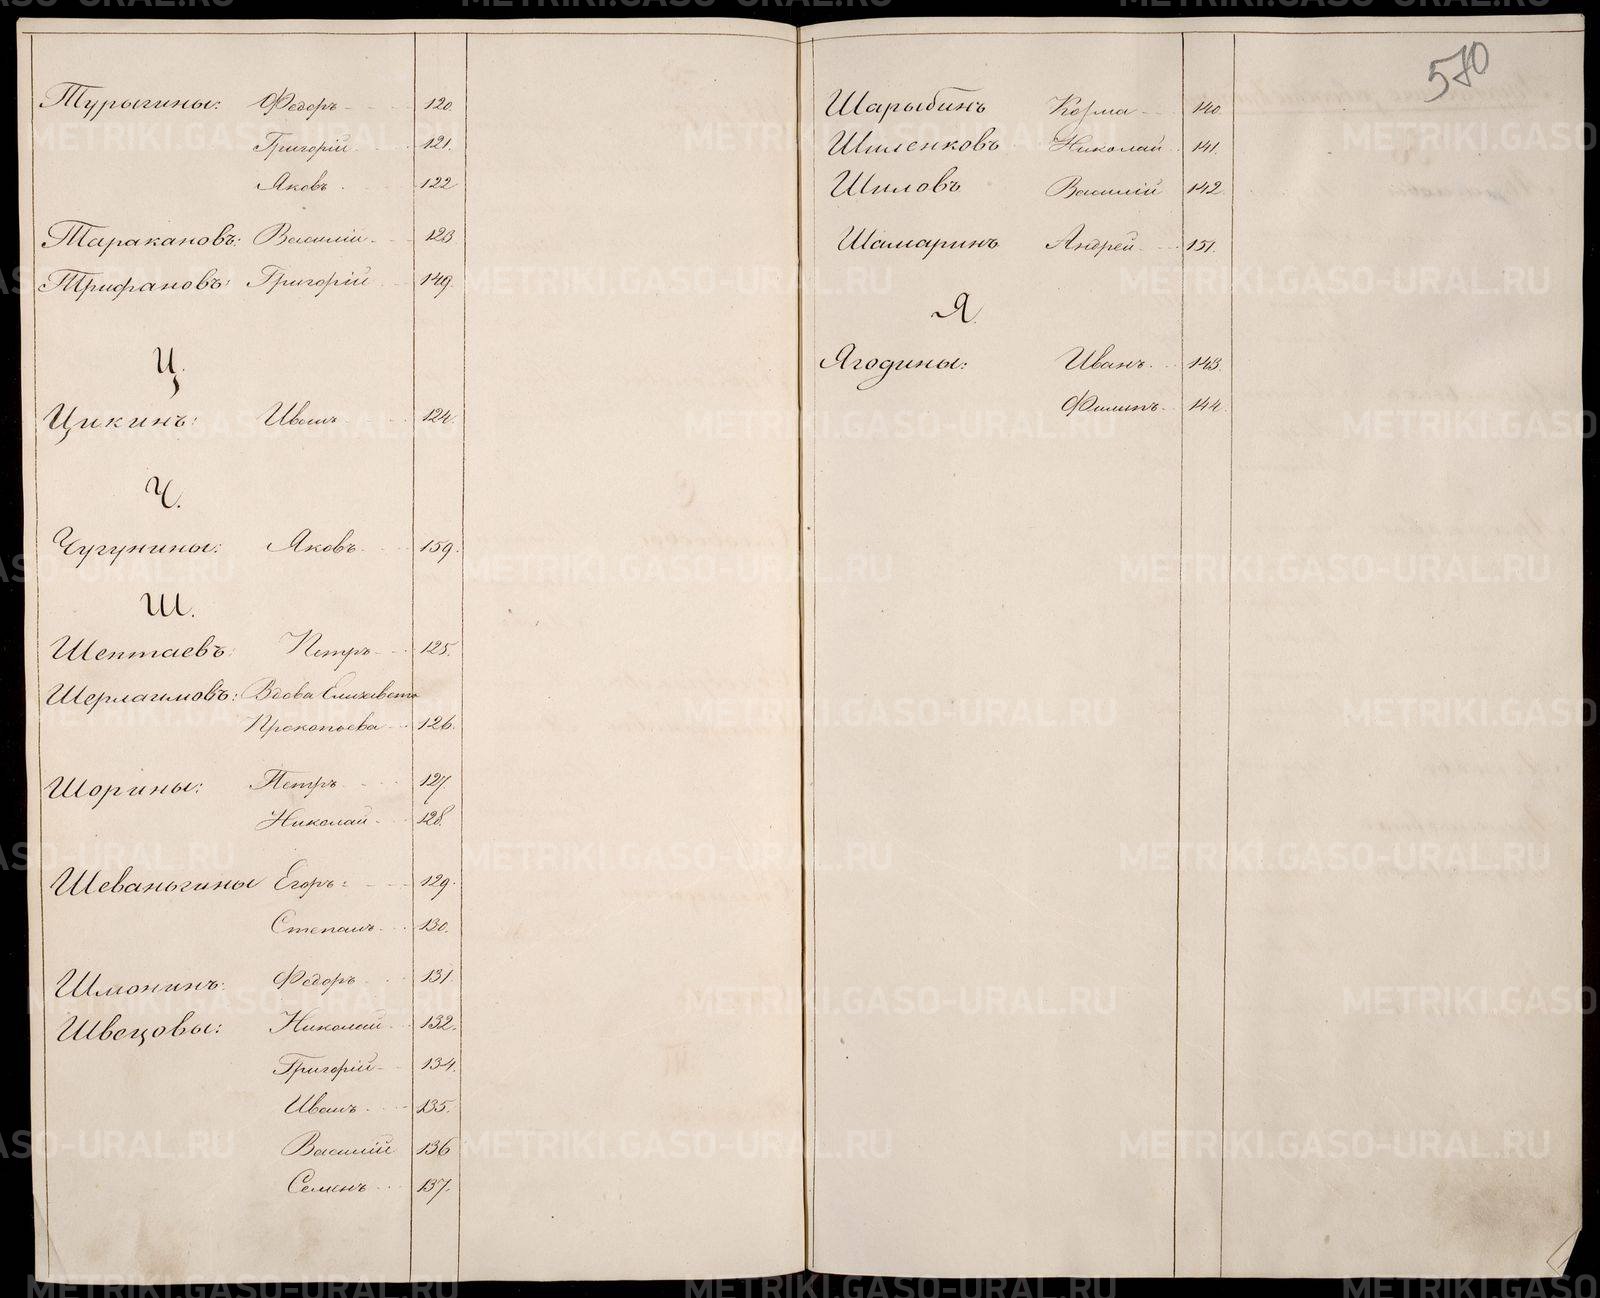 Турыгины: Федоръ 120.
Григорій 121.
Яковъ 122
Таракановъ: Василій 123
Трифановъ: Григорій 149.
Ц.
Цикинъ: Иванъ 124.
Ч.
Чугунины: Яковъ 159.
Ш.
Шептаевъ: Петръ 125.
Шерлаимовъ: Вдова Елизавета
Прокопьева 126.
Шорины: Петръ 127.
Николай 128.
Шеваногины Егоръ: 129.
Степанъ 130.
Шмонинъ: Федоръ 131.
Швецовы: Николай 132.
Григорій 134.
Иванъ 135.
Василій 136
Семенъ 137.
570
Шарыбинъ Козма 140.
Шиленковъ Николай 141.
Шиловъ Василій 142.
Шамаринъ Андрей 151.
Я.
Ягодины: Иванъ 143.
Филипъ 144.
METRIKI.GASO-URAL.RU